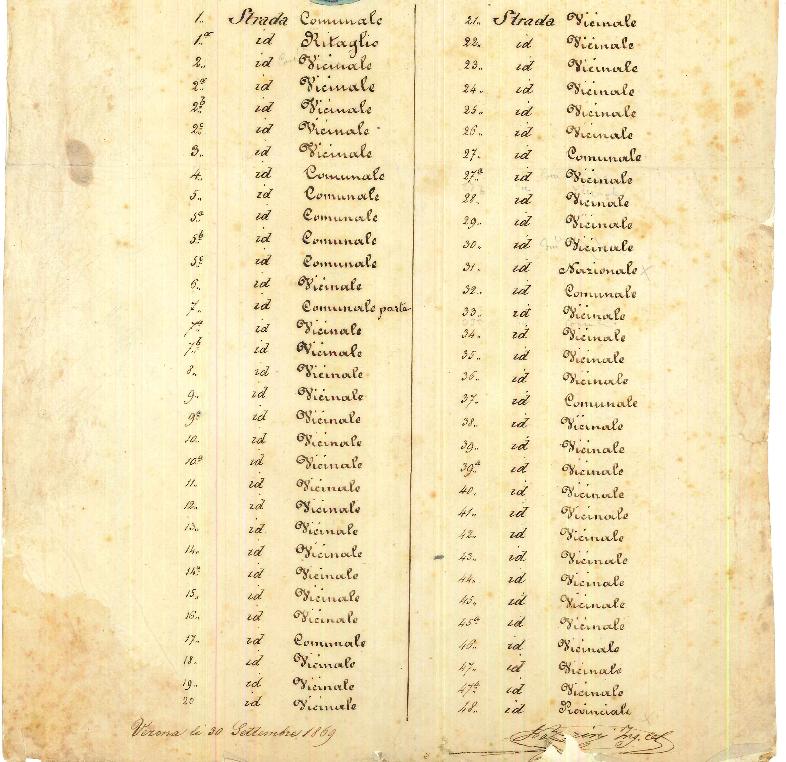 1. Strada Comunale
1.a id Ritaglio
2. id Vicinale
2a id Vicinale
2b id Vicinale
2c id Vicinale
3. id Vicinale
4. id Comunale
5. id Comunale
5a id Comunale
5b id Comunale
5c id Comunale
6. id Vicinale
7. id Comunale parte
7a id Vicinale
7b id Vicinale
8. id Vicinale
9. id Vicinale
9a id Vicinale
10. id Vicinale
10a id Vicinale
11. id Vicinale
12. id Vicinale
13. id Vicinale
14. id Vicinale
14a id Vicinale
15. id Vicinale
16. id Vicinale
17. id Comunale
18. id Vicinale
19. id Vicinale
20 id Vicinale
21. Strada Vicinale
22. id Vicinale
23. id Vicinale
24. id Vicinale
25. id Vicinale
26. id Vicinale
27. id Comunale
27a id Vicinale
28. id Vicinale
29. id Vicinale
30. id Vicinale
31. id Nazionale
32. id Comunale
33. id Vicinale
34. id Vicinale
35. id Vicinale
36. id Vicinale
37. id Comunale
38. id Vicinale
39. id Vicinale
39a id Vicinale
40. id Vicinale
41. id Vicinale
42. id Vicinale
43. id Vicinale
44. id Vicinale
45. id Vicinale
45a id Vicinale
46. id Vicinale
47. id Vicinale
47a id Vicinale
48. id Provinciale
Verona li 30 Settembre 1869
Ing.